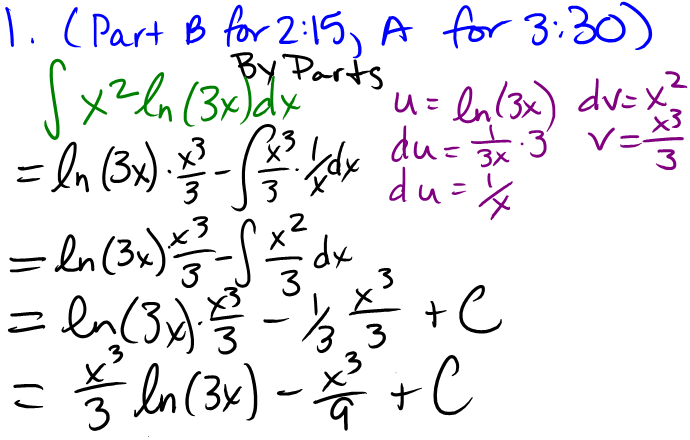 1. (Part B for 2:15, A for 3:30)
By Parts
∫ x² ln(3x) dx
u = ln(3x) dv = x²
du = 1/3x · 3 v = x³/3
du = 1/x
= ln(3x) · x³/3 - ∫ x³/3 · 1/x dx
= ln(3x) x³/3 - ∫ x²/3 dx
= ln(3x) · x³/3 - 1/3 x³/3 + C
= x³/3 ln(3x) - x³/9 + C